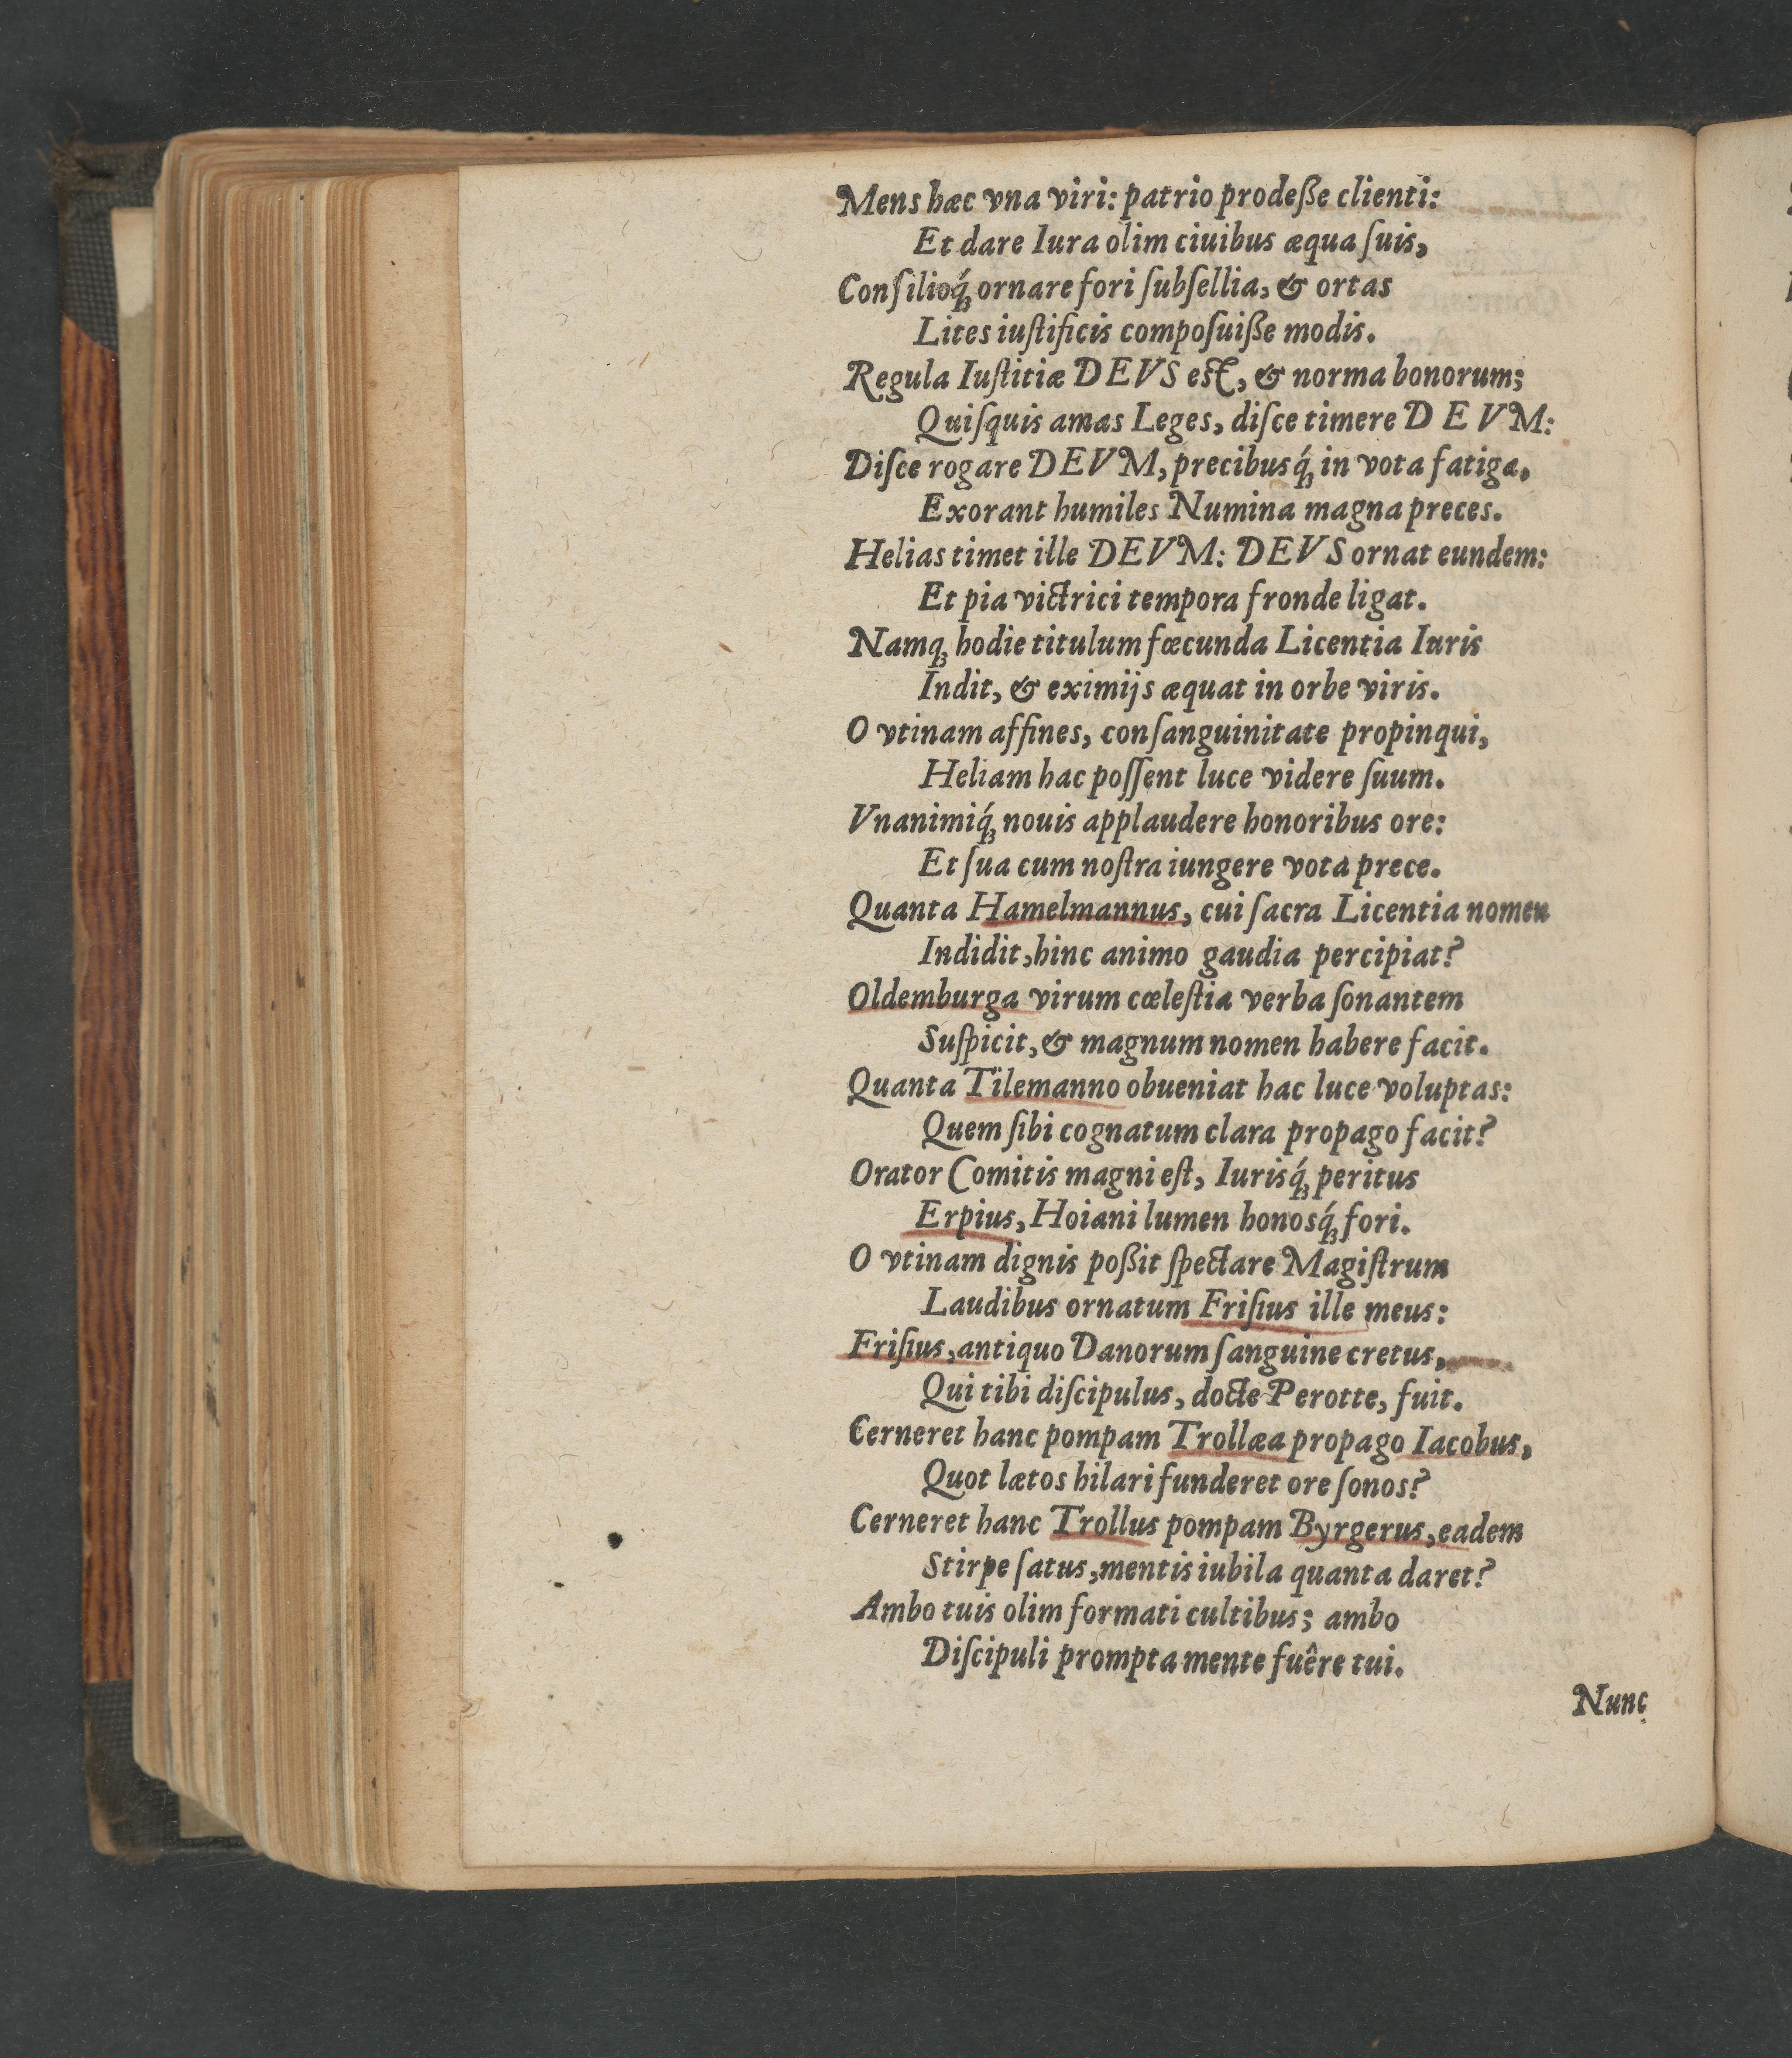 Mens hæc vna viri: patrio prodeſſe clienti:
Et dare Iura olim ciuibus æqua ſuis,
Conſilioq́ꝫ ornare fori ſubſellia, & ortas
Lites iuſtificis compoſuiſſe modis.
Regula Iuſtitiæ DEVS est, & norma bonorum;
Quiſquis amas Leges, diſce timere DEVM:
Diſce rogare DEVM, precibusq́ꝫ in vota fatiga,
Exorant humiles Numina magna preces.
Helias timet ille DEVM: DEVS ornat eundem:
Et pia victrici tempora fronde ligat.
Namqꝫ hodie titulum fœcunda Licentia Iuris
Indit, & eximijs æquat in orbe viris.
O vtinam affines, conſanguinitate propinqui,
Heliam hac poſſent luce videre ſuum.
Vnanimiq́ꝫ nouis applaudere honoribus ore:
Et ſua cum noſtra iungere vota prece.
Quanta Hamelmannus, cui ſacra Licentia nomen
Indidit, hinc animo gaudia percipiat?
Oldemburga virum cœleſtia verba ſonantem
Suſpicit, & magnum nomen habere facit.
Quanta Tilemanno obueniat hac luce voluptas:
Quem ſibi cognatum clara propago facit?
Orator Comitis magni eſt, Iurisq́ꝫ peritus
Erpius, Hoiani lumen honosq́ꝫ fori.
O vtinam dignis poßit ſpectare Magiſtrum
Laudibus ornatum Friſius ille meus:
Friſius, antiquo Danorum ſanguine cretus,
Qui tibi diſcipulus, docte Perotte, fuit.
Cerneret hanc pompam Trollæa propago Iacobus,
Quot lætos hilari funderet ore ſonos?
Cerneret hanc Trollus pompam Byrgerus, eadem
Stirpe ſatus, mentis iubila quanta daret?
Ambo tuis olim formati cultibus; ambo
Diſcipuli prompta mente fuêre tui.
Nunc